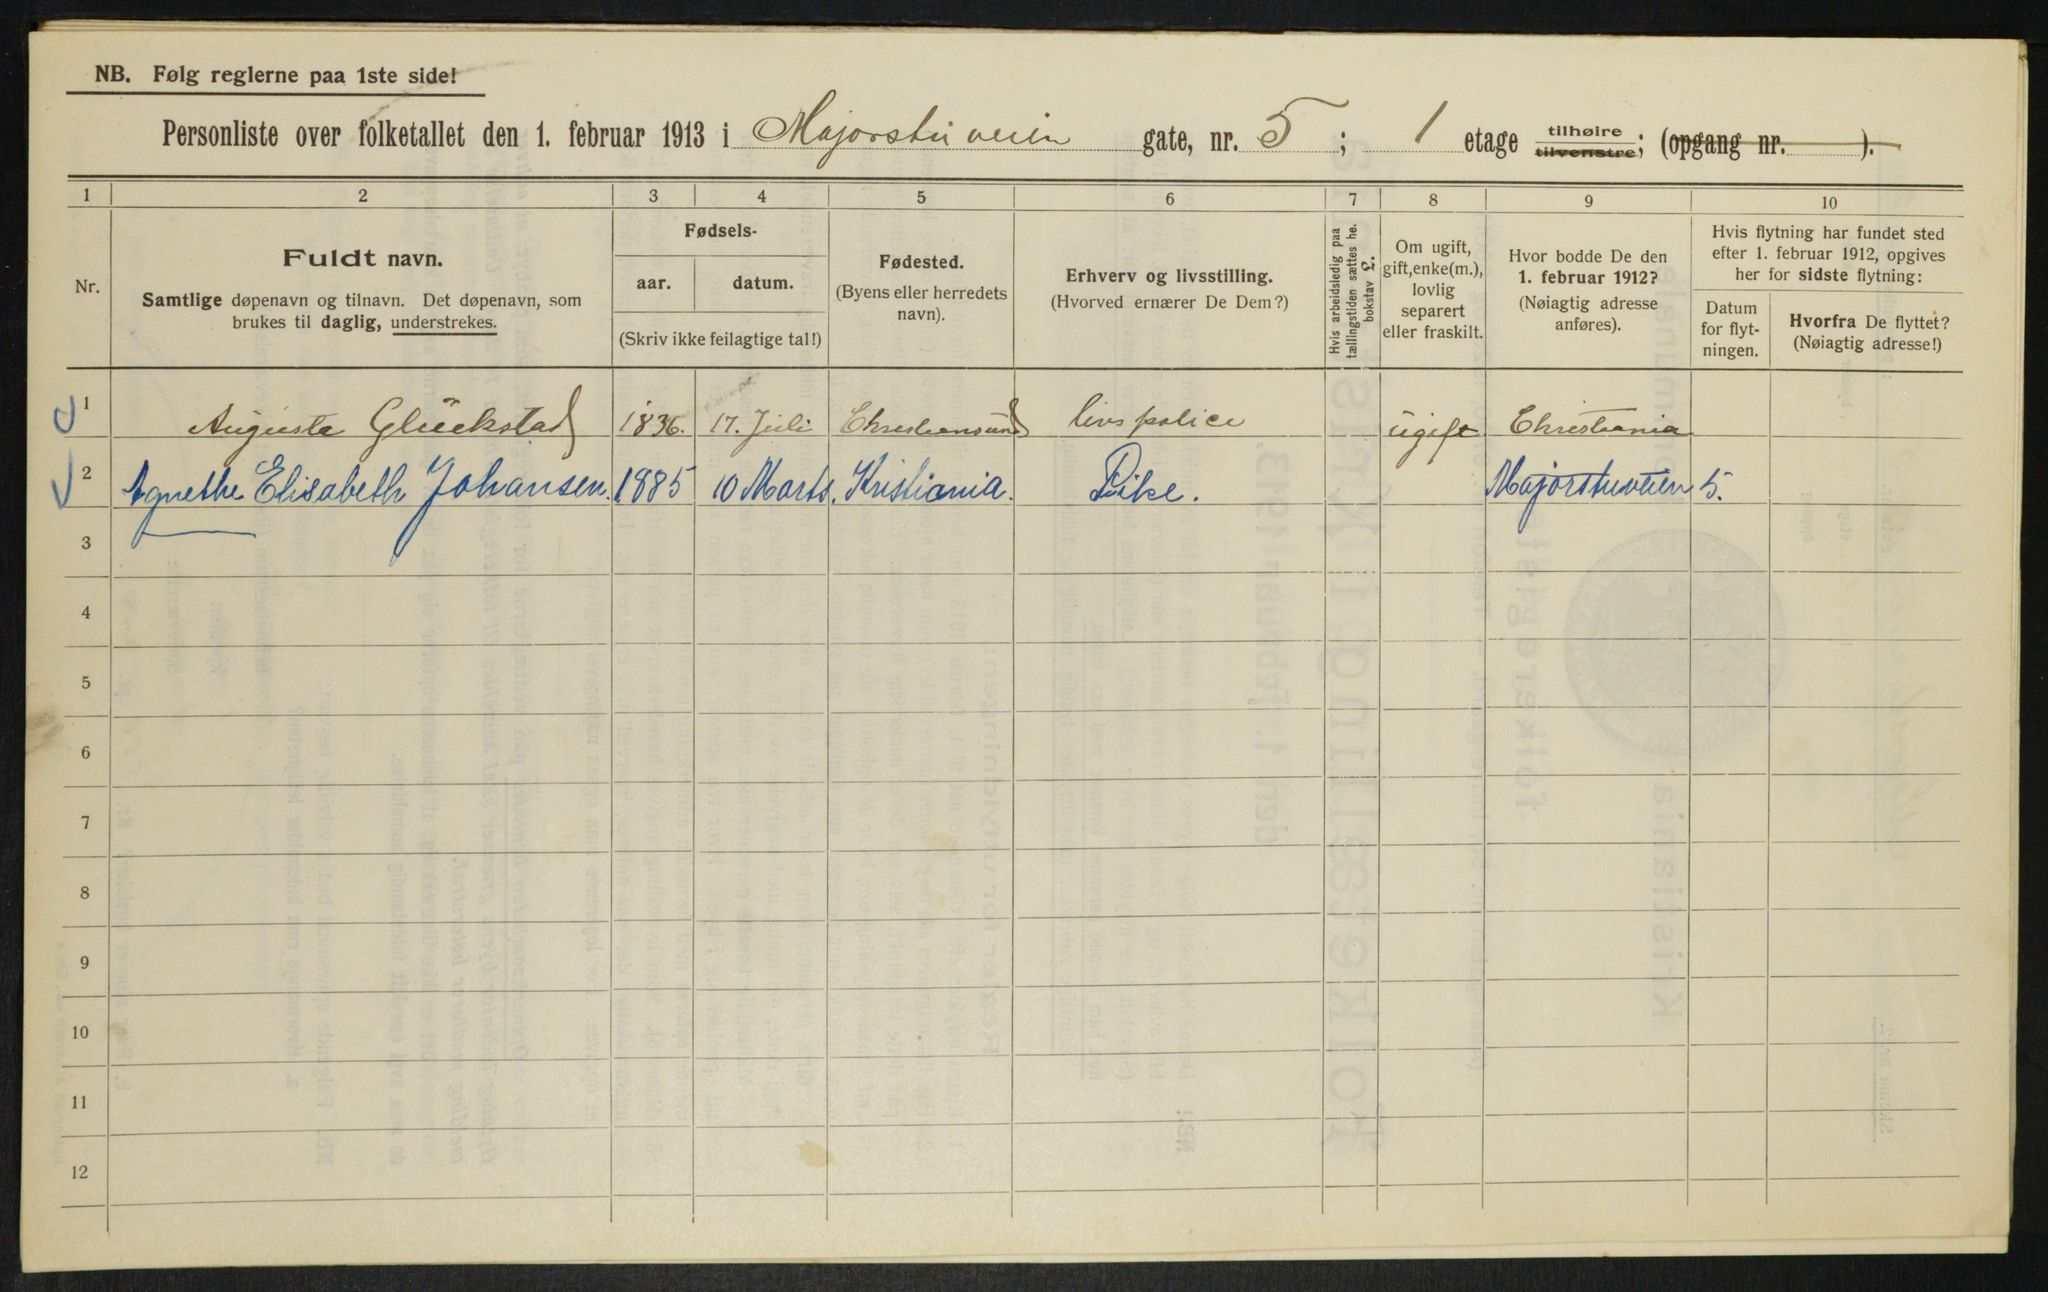 NB. Følg reglerne paa 1ste side!
Personliste over folketallet den 1. februar 1913 i Majorstuveien gate, nr. 5; 1 etage tilhøire tilvenstre; (opgang nr. ).
1 2 3 4 5 6 7 8 9 10
Nr.
Fuldt navn.
Samtlige døpenavn og tilnavn. Det døpenavn, som
brukes til daglig, understrekes.
Fødsels-
aar. datum.
(Skriv ikke feilagtige tal!)
Fødested.
(Byens eller herredets
navn).
Erhverv og livsstilling.
(Hvorved ernærer De Dem?)
Hvis arbeidsledig paa
tællingstiden sættes he.
bokstav £.
Om ugift,
gift, enke(m.),
lovlig
separert
eller fraskilt.
Hvor bodde De den
1. februar 1912?
(Nøiagtig adresse
anføres).
Hvis flytning har fundet sted
efter 1. februar 1912, opgives
her for sidste flytning:
Datum
for flyt-
ningen.
Hvorfra De flyttet?
(Nøiagtig adresse!)
1 Auguste Glückstad 1836. 17. Juli Christiansund livspolice ugift Christiania
2 Agnethe Elisabeth Johansen. 1885 10 Marts. Kristiania. Pike. Majorstuveien 5.
3
4
5
6
7
8
9
10
11
12